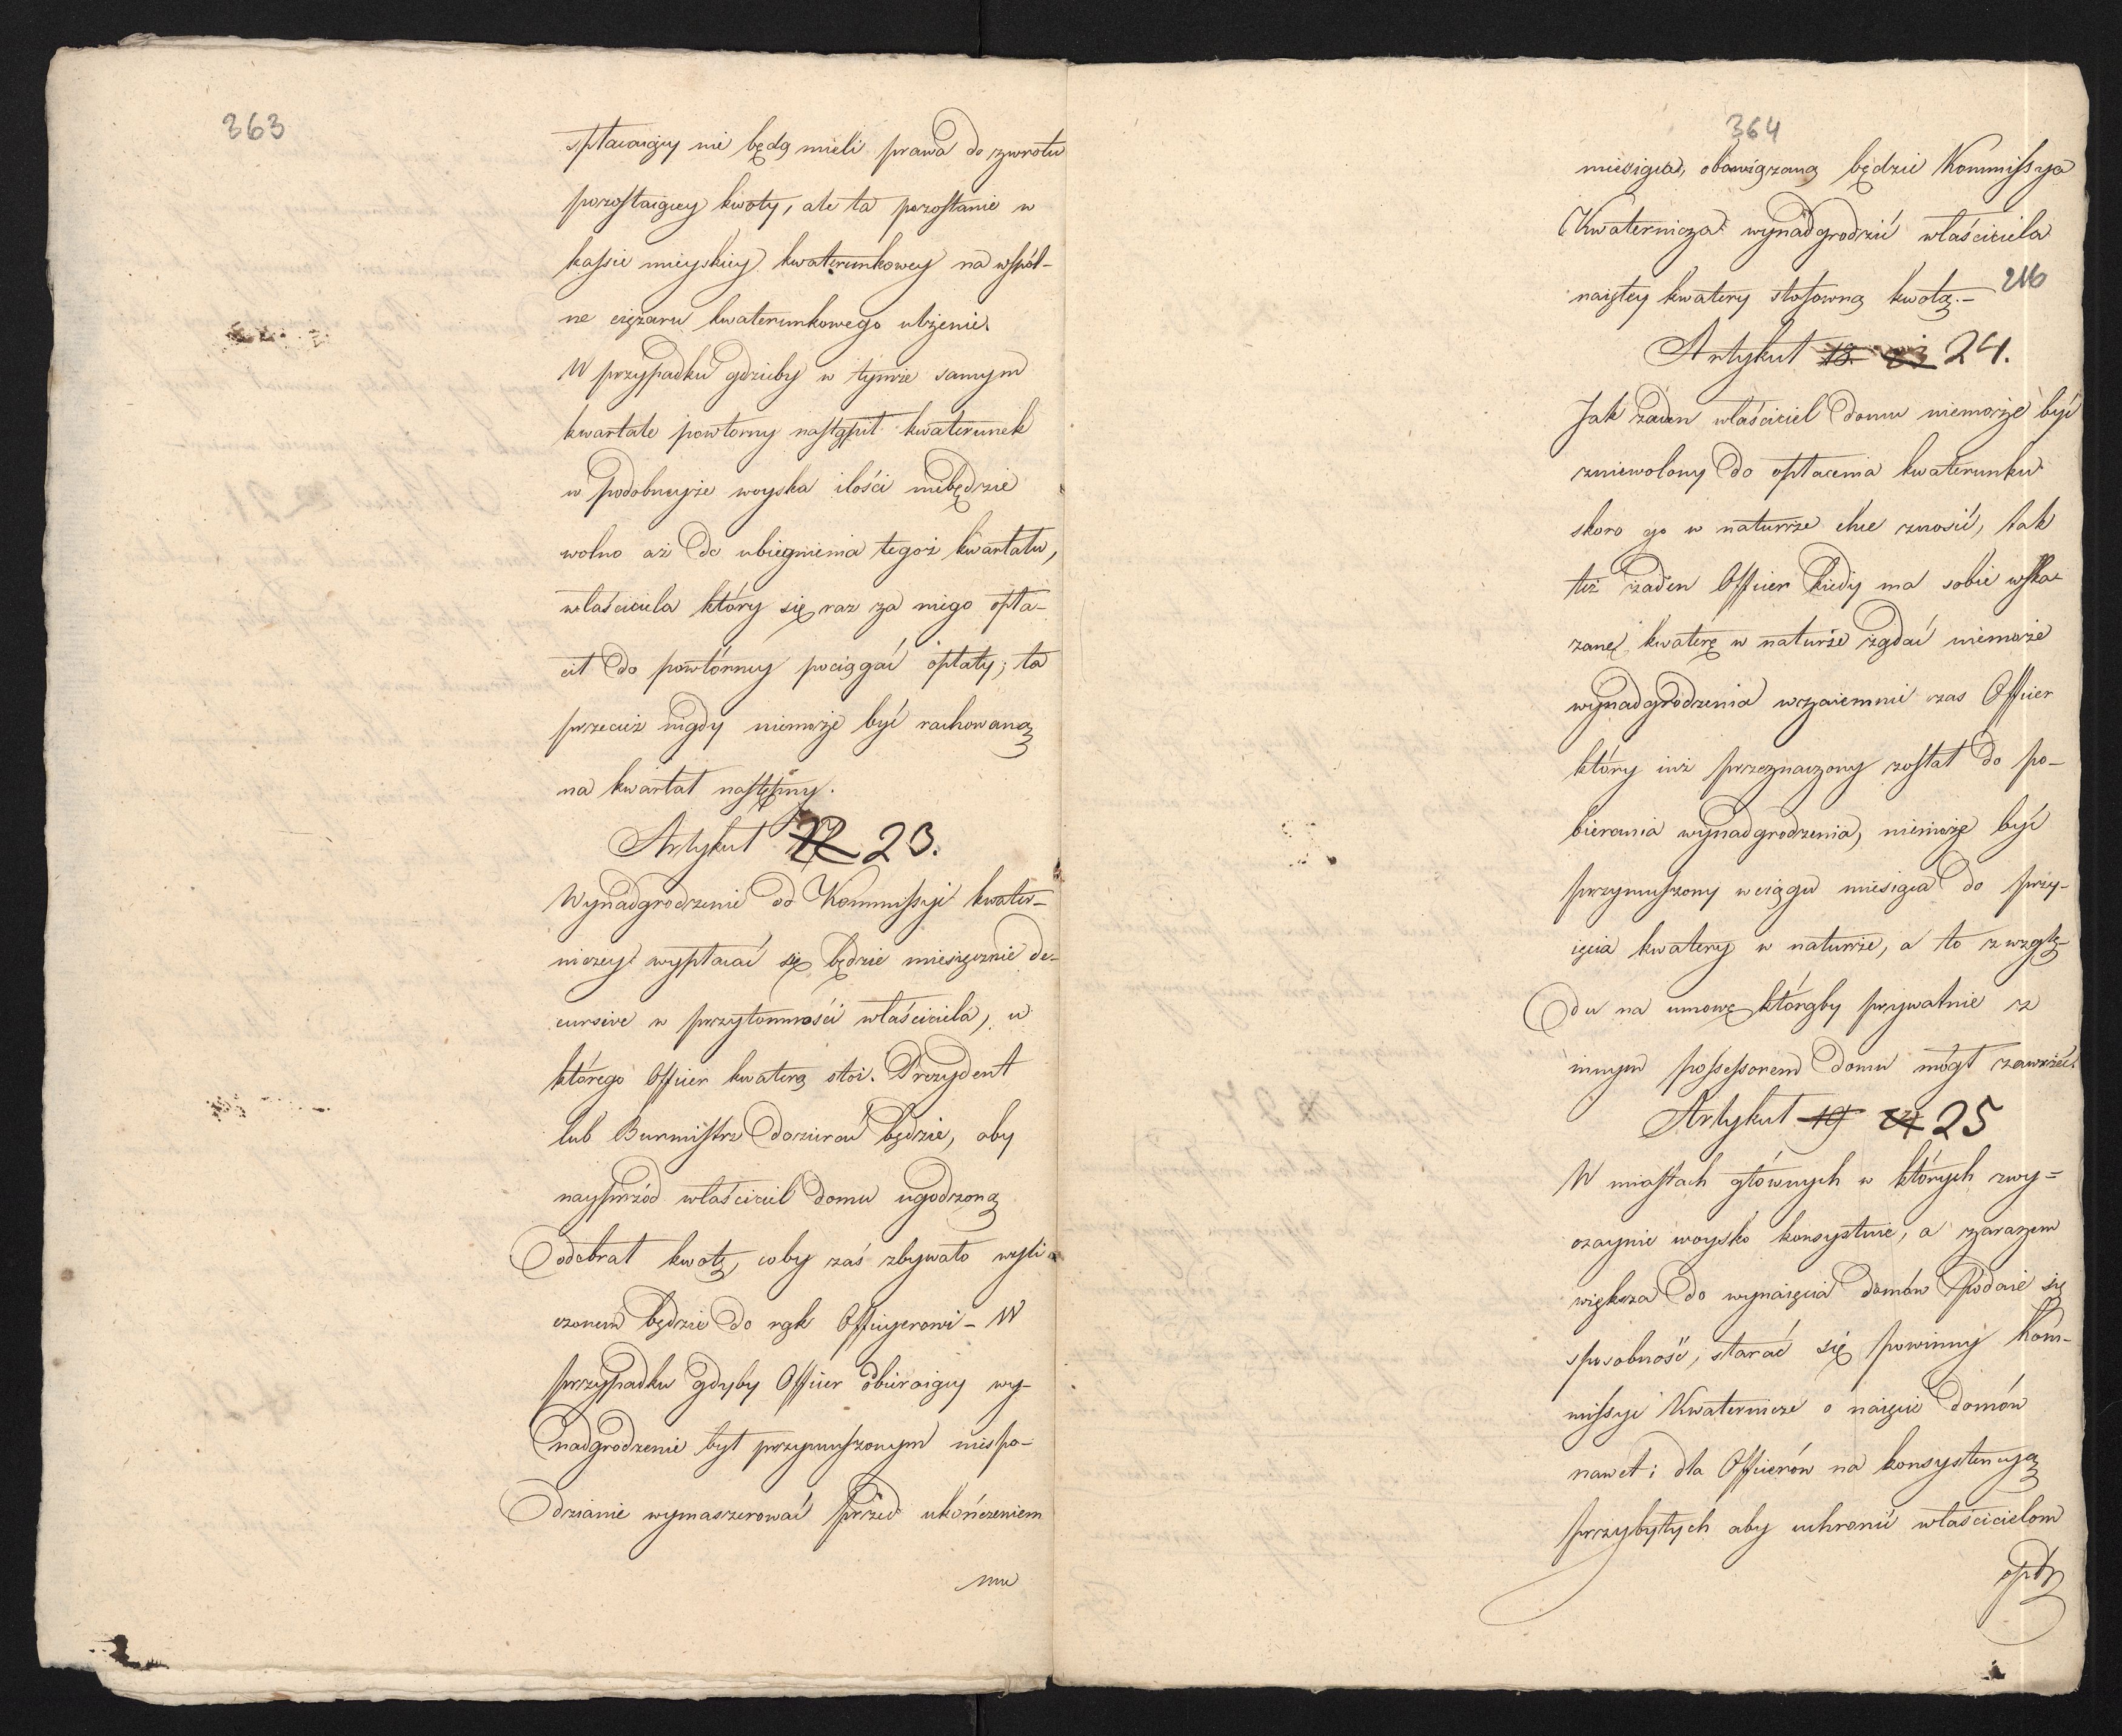 363
opłacaiący nie będą mieli prawa do zwrotu
pozostaiącey kwoty, ale ta pozostanie w
kassie mieyskiey kwaterunkowey na wspól-
ne ciężaru kwaterunkowego ulżenie.
W przypadku gdzieby w tymże samym
kwartale powtorny nastąpił kwaterunek
w podobneyże woyska ilości niebędzie
wolno aż do ubiegnienia tegoż kwartału,
właściciela który się raz za niego opła-
cił do powtórney pociągać opłaty; ta
przecież nigdy niemoże być rachowaną
na kwartał następny.
Artykuł 23.
Wynadgrodzenie od Kommissyi kwater-
niczey wypłacać się będzie miesięcznie de-
cursive w przytomności właściciela, u
którego Officer kwaterą stoi. Prezydent
lub Burmistrz dozierać będzie, aby
nayprzód właściciel domu ugodzoną
odebrał kwotę, coby zaś zbywało wyli-
czonem będzie do rąk Officyerowi - W
przypadku gdyby Officer obieraiący wy-
nadgrodzenie był przymuszonym niespo-
dzianie wymaszerować przed ukończeniem
mie
364
miesiąca, obowiązaną będzie Kommissya
Kwaternicza wynadgrodzić właściciela
naiętey kwatery stosowną kwotą. -
216
Artykuł 18. 23 24.
Jak żaden właściciel domu niemoże być
zniewolony do opłacenia kwaterunku
skoro go w naturze chce znosić, tak
też żaden Officer kiedy ma sobie wska-
zaną kwaterę w naturze żądać niemoże
wynadgrodzenia wzaiemnie zas Officer
który iuż przeznaczony został do po-
bierania wynadgrodzenia, niemoże być
przymuszony wciągu miesiąca do przy-
ięcia kwatery w naturze, a to z wzglę-
du na umowę którąby prywatnie z
innym possessorem domu mógł zawrzeć.
Artykuł 19 24 25
W miastach głównych w których zwy-
czaynie woysko konsystuie, a zarazem
większa do wynaięcia domów podaie się
sposobność, starać się powinny Kom-
missye Kwaternicze o naięcie domów
nawet i dla Officerów na konsystencyą
przybyłych aby uchronić właścicielom